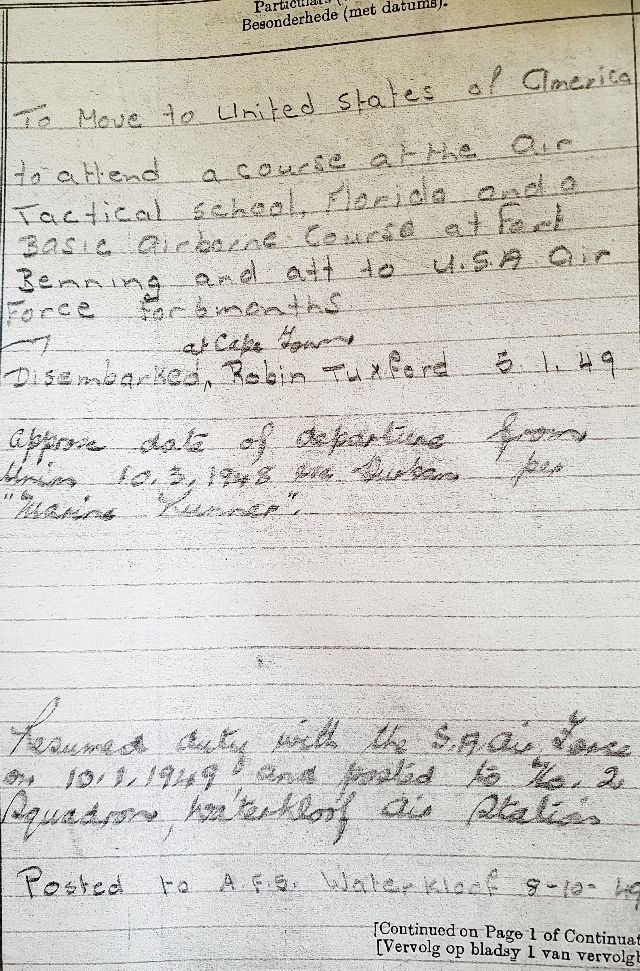 Particulars (
Besonderhede (met datums).
To Move to United States of America
to attend a course at the Air
Tactical school, Florida and a
Basic Airborne Course at Fort
Benning and att to U.S.A Air
Force for 6 months
at Cape Town
Disembarked, Robin Tuxford 5.1.49
Approx date of departure from
Union 10.3.1948 Durban per
"Marine Runner".
Resumed duty with the S.A Air Force
on 10.1.1949 and posted to No. 2
Squadron, Waterkloof Air Station
Posted to A.F.S. Waterkloof 8-10-49
[Continued on Page 1 of Continuat
[Vervolg op bladsy 1 van vervolg